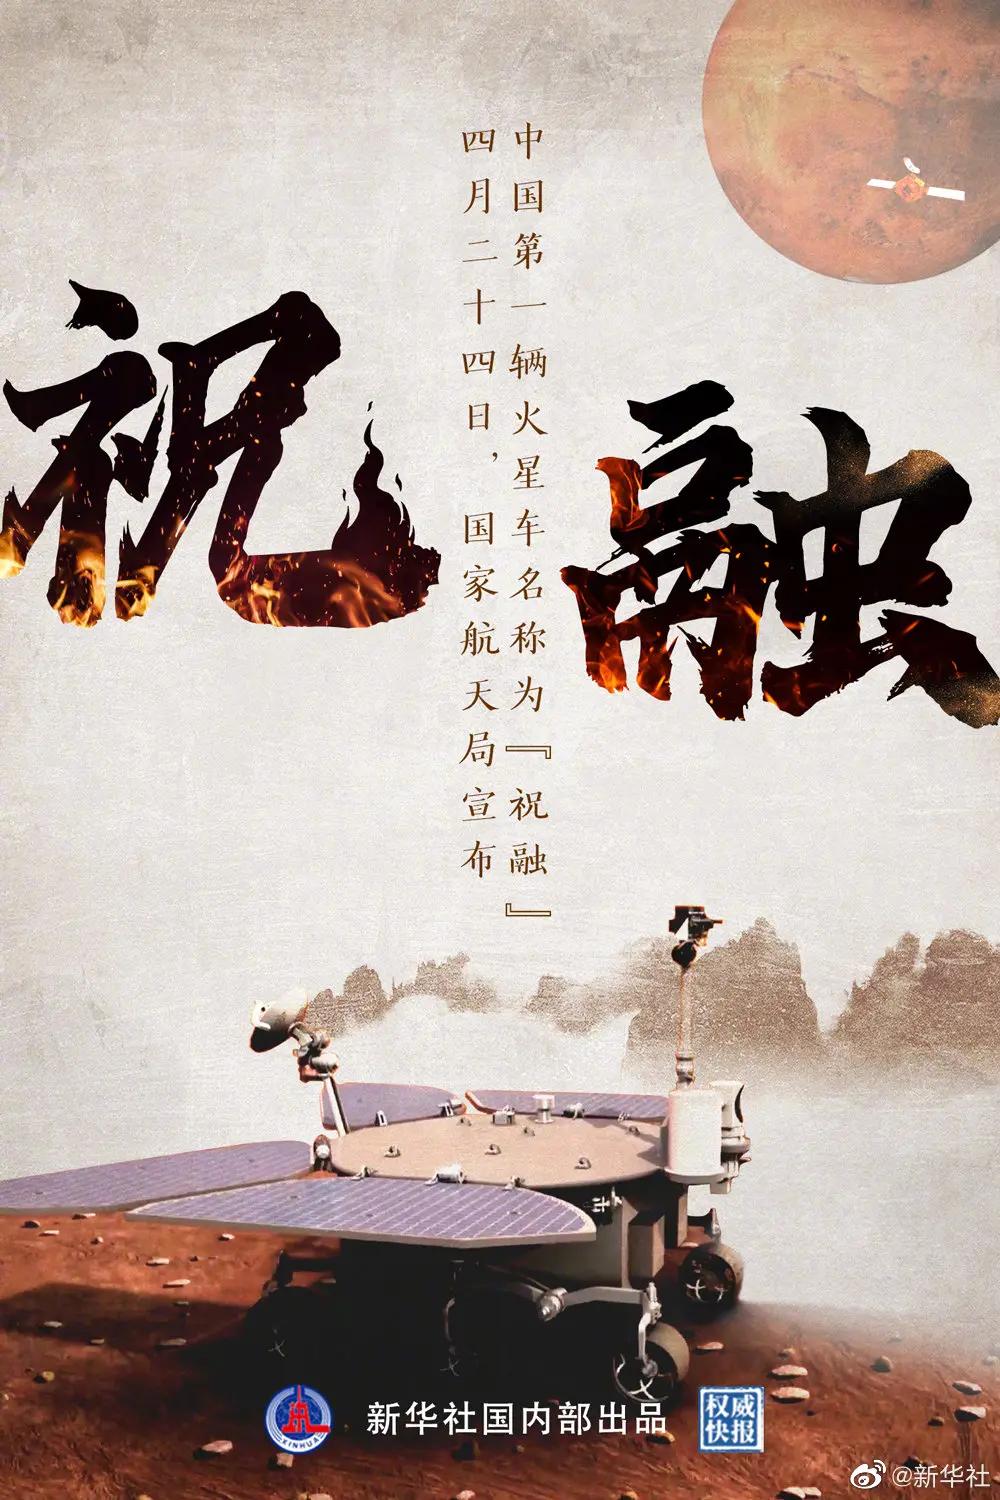 祝融
中国第一辆火星车名称为『祝融』
四月二十四日，国家航天局宣布
XINHUA
新华社国内部出品
权威
快报
@新华社